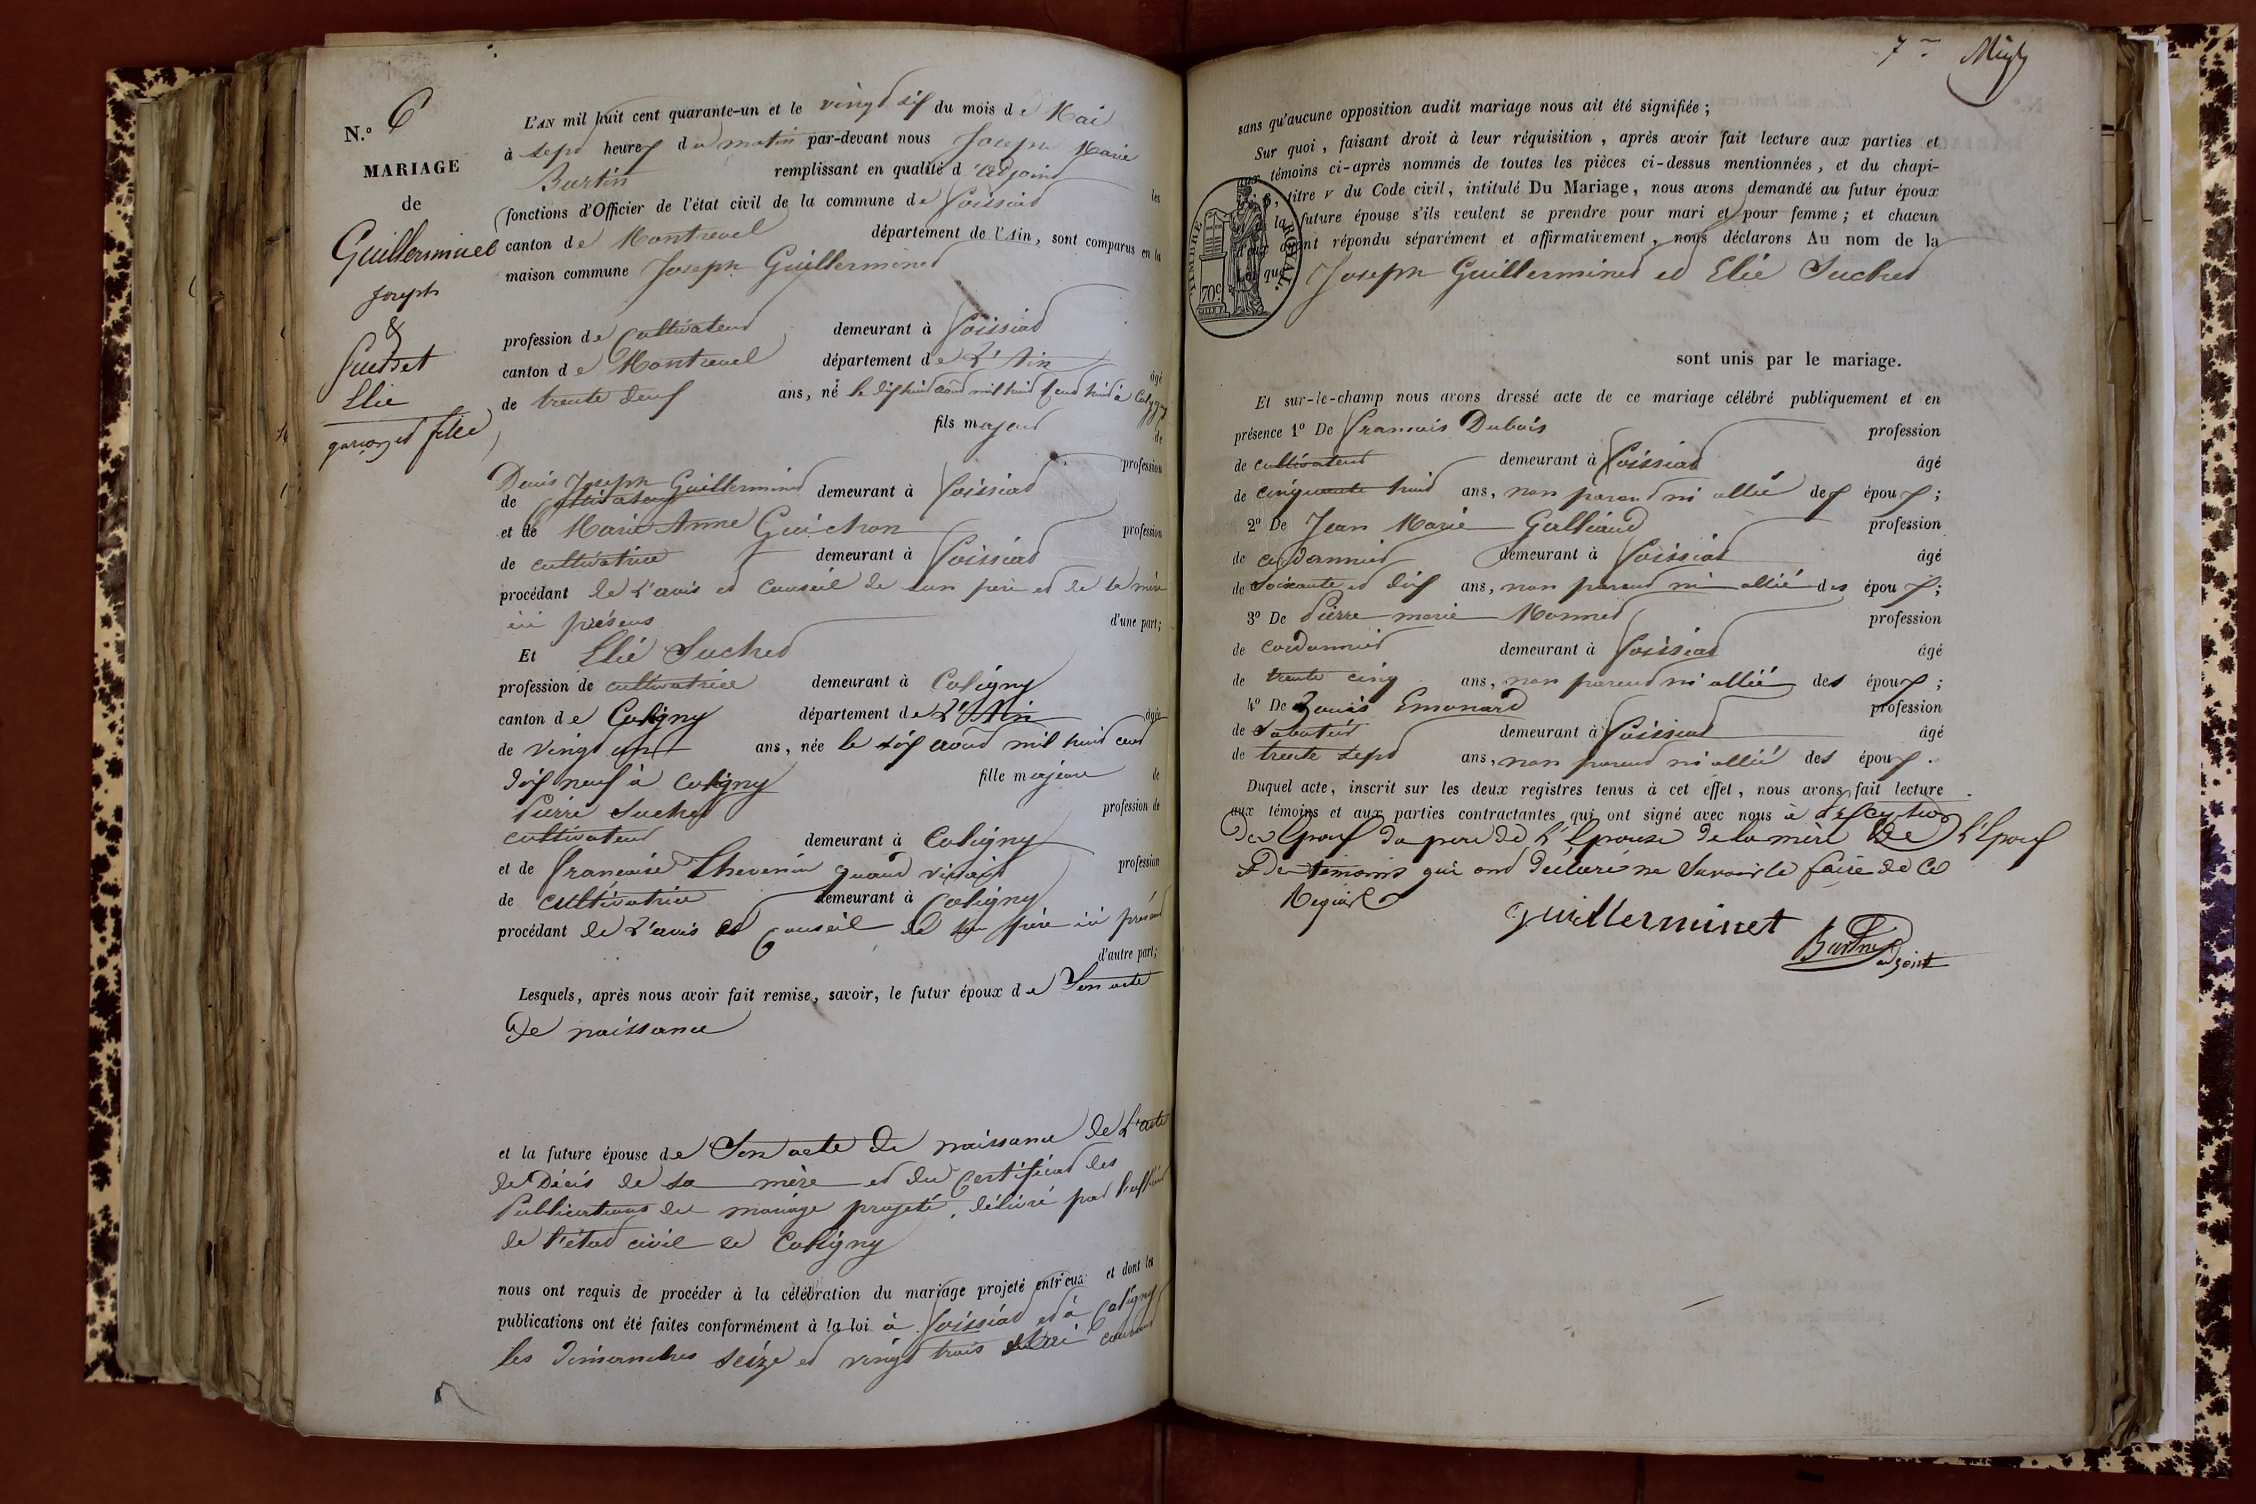 N.º 6
MARIAGE
de
Guillerminet
Joseph
&
Suchet
Elie
garçon et fille
L'AN mil huit cent quarante-un et le vingt six du mois de Mai
à sept heures du matin par-devant nous Joseph Marie
Burtin remplissant en qualité d'adjoint les
fonctions d'Officier de l'état civil de la commune de Foissiat
canton de Montrevel département de l'Ain, sont comparus en la
maison commune Joseph Guillerminet
profession de Cultivateur demeurant à Foissiat
canton de Montrevel département de L'Ain âgé
de trente deux ans, né le dix huit août mil huit cent huit à Coligny
fils majeur de
Denis Joseph Guillerminet profession
de Cultivateur demeurant à Foissiat
et de Marie Anne Guichon profession
de cultivatrice demeurant à Foissiat
procédant de L'avis et Conseil de son père et de sa mère
ici présens d'une part;
Et Elie Suchet
profession de cultivatrice demeurant à Coligny
canton de Coligny département de L'Ain âgée
de vingt un ans, née le dix août mil huit cent
dix neuf à Coligny fille majeure de
Pierre Suchet profession de
cultivateur demeurant à Coligny
et de Françoise Thevenin quand vivait profession
de cultivatrice demeurant à Coligny
procédant de L'avis et Conseil de son père ici présent
d'autre part;
Lesquels, après nous avoir fait remise, savoir, le futur époux de Son acte
de naissance
et la future épouse de Son acte de naissance de L'acte
de Décès de sa mère et du Certificat des
Publications du mariage projeté, délivré par l'officier
de l'état civil de Coligny
nous ont requis de procéder à la célébration du mariage projeté entr'eux et dont les
publications ont été faites conformément à la loi à Foissiat et à Coligny
les dimanches seize et vingt trois Mai courant
7me
sans qu'aucune opposition audit mariage nous ait été signifiée;
Sur quoi, faisant droit à leur réquisition, après avoir fait lecture aux parties et
aux témoins ci-après nommés de toutes les pièces ci-dessus mentionnées, et du chapi-
, titre V du Code civil, intitulé Du Mariage, nous avons demandé au futur époux
la future épouse s'ils veulent se prendre pour mari et pour femme; et chacun
ayant répondu séparément et affirmativement, nous déclarons Au nom de la
que Joseph Guillerminet et Elie Suchet
TIMBRE ROYAL.
70c
sont unis par le mariage.
Et sur-le-champ nous avons dressé acte de ce mariage célébré publiquement et en
présence 1º De Francois Dubois profession
de cultivateur demeurant à Foissiat âgé
de cinquante huit ans, non parent ni allié des époux;
2º De Jean Marie Galliand profession
de cordonnier demeurant à Foissiat âgé
de soixante et dix ans, non parent ni allié des époux;
3º De Pierre marie Monnet profession
de cordonnier demeurant à Foissiat âgé
de trente cinq ans, non parent ni allié des époux;
4º De Louis Emonard profession
de sabotier demeurant à Foissiat âgé
de trente sept ans, non parent ni allié des époux.
Duquel acte, inscrit sur les deux registres tenus à cet effet, nous avons fait lecture
aux témoins et aux parties contractantes qui ont signé avec nous à l'exception
de l'Epoux du père de L'Epouse de la mère de L'Epoux
et des témoins qui ont déclaré ne savoir le faire de ce
Requis
Guillerminet
Burtin
adjoint